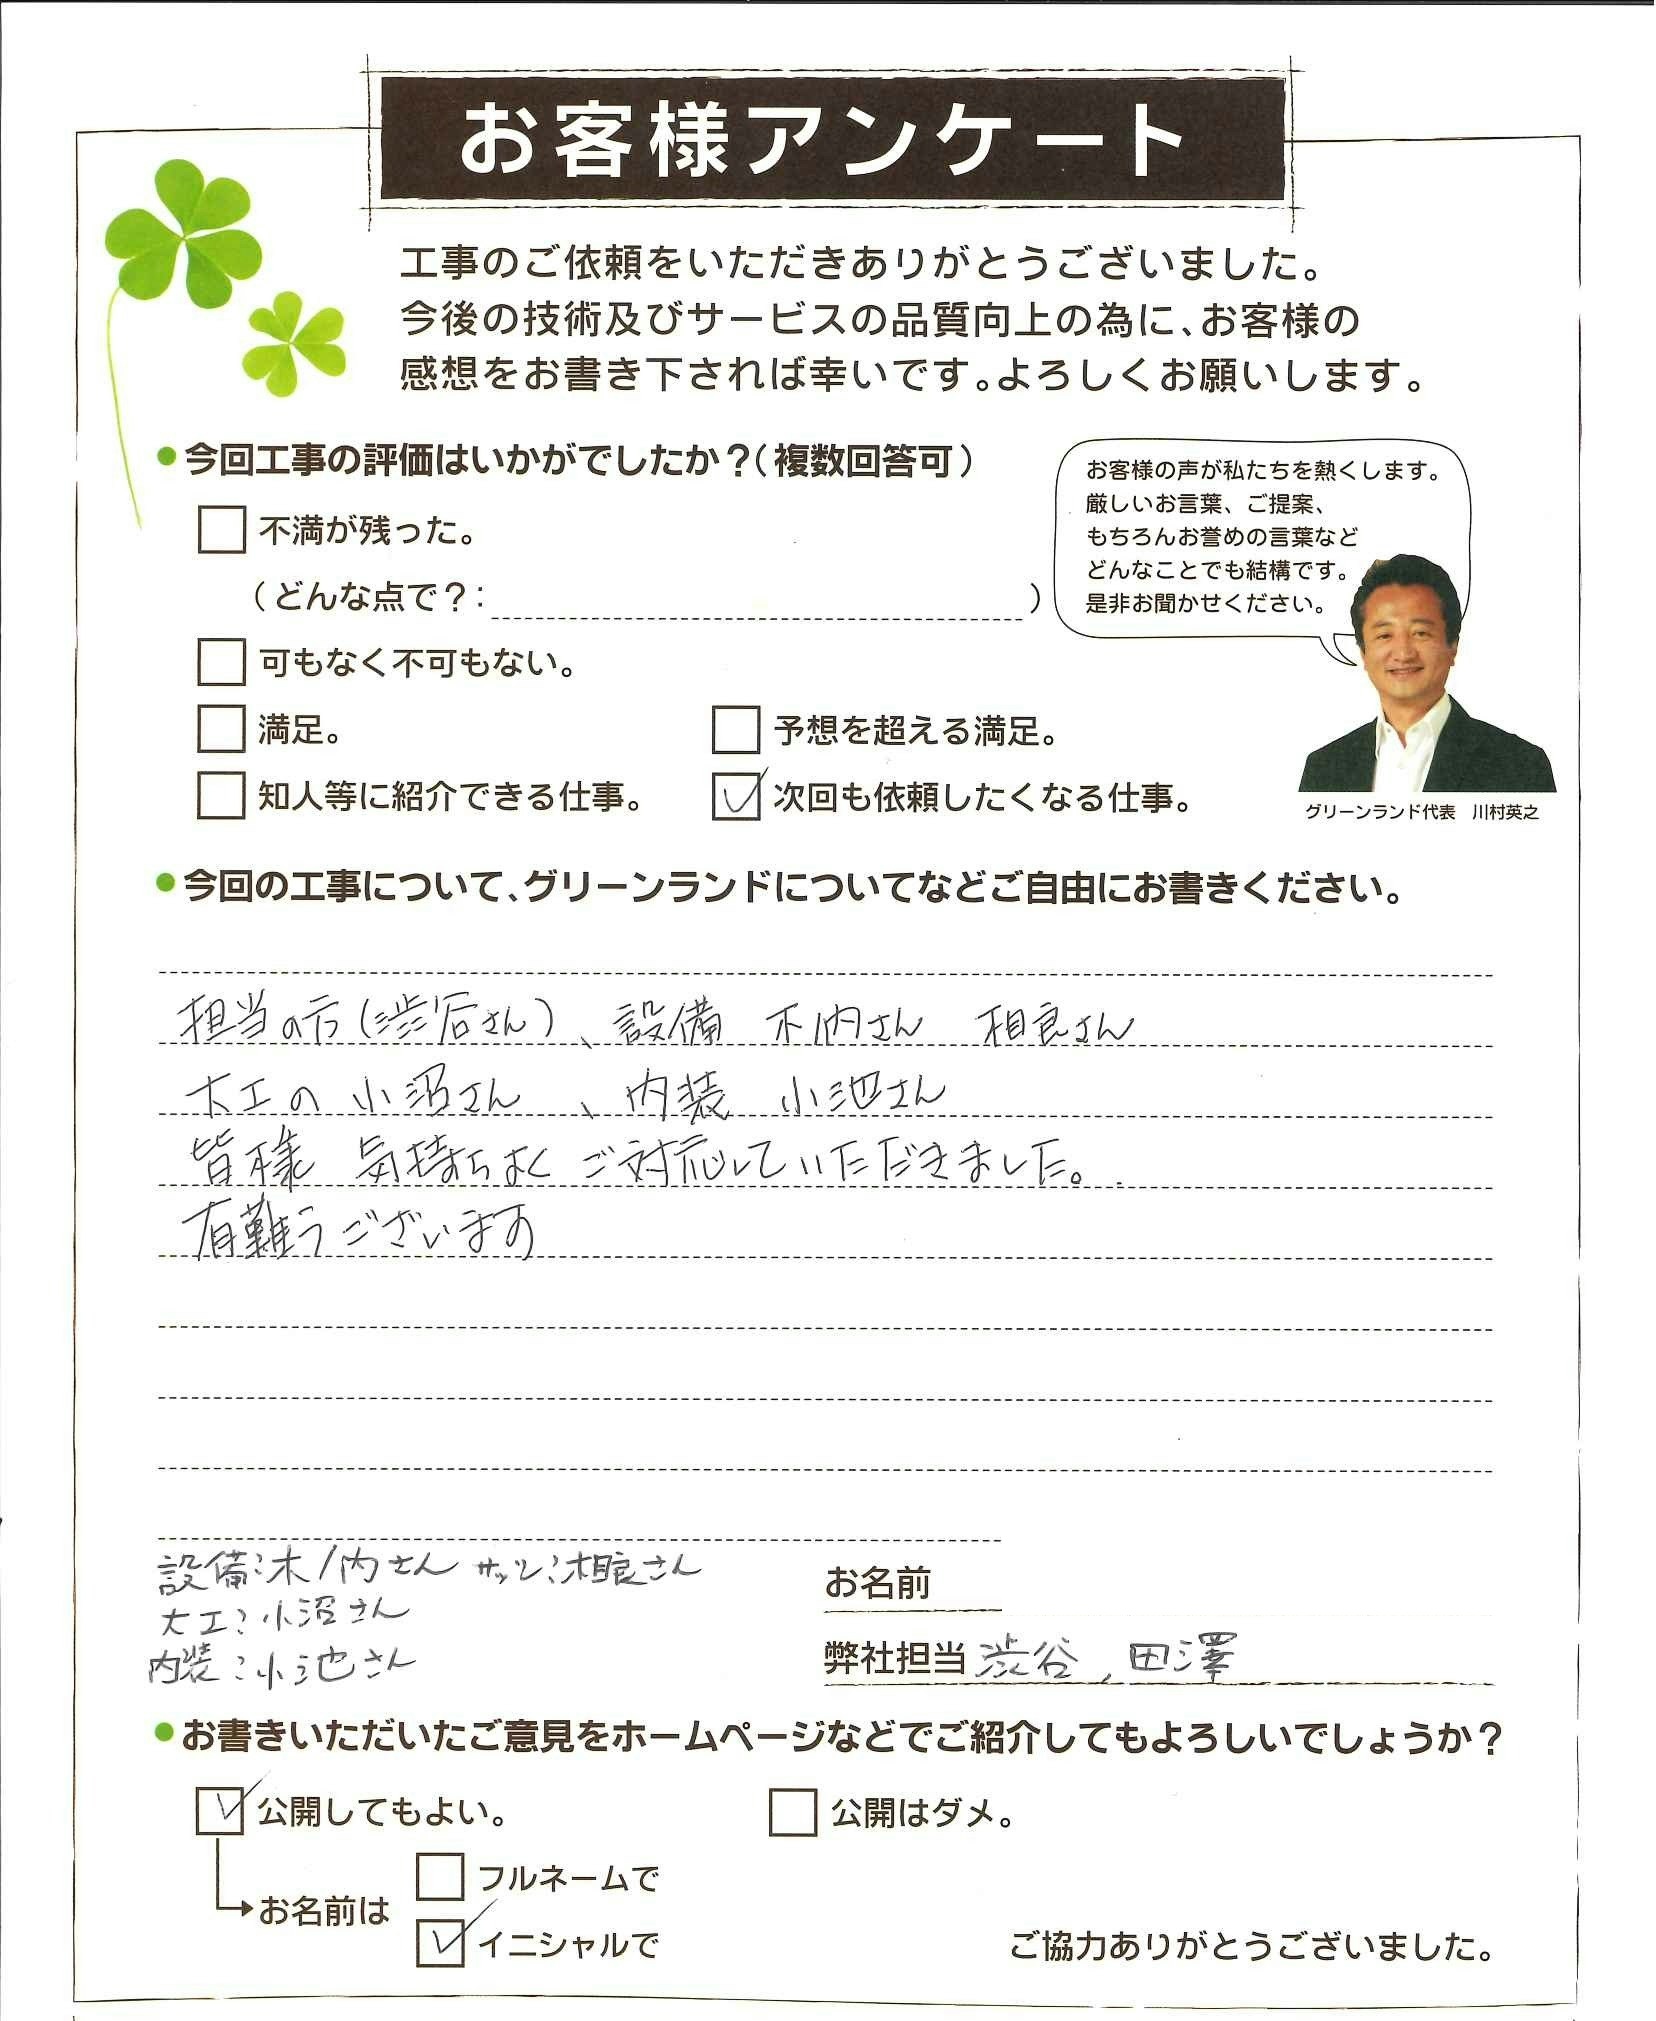 お客様アンケート
工事のご依頼をいただきありがとうございました。
今後の技術及びサービスの品質向上の為に、お客様の
感想をお書き下されば幸いです。よろしくお願いします。
今回工事の評価はいかがでしたか？（複数回答可）
不満が残った。
（どんな点で？：　）
可もなく不可もない。
満足。
予想を超える満足。
知人等に紹介できる仕事。
次回も依頼したくなる仕事。
お客様の声が私たちを熱くします。
厳しいお言葉、ご提案、
もちろんお誉めの言葉など
どんなことでも結構です。
是非お聞かせください。
グリーンランド代表　川村英之
今回の工事について、グリーンランドについてなどご自由にお書きください。
担当の方（渋谷さん）、設備　木内さん　相良さん
大工の　小沼さん　、内装　小池さん
皆様　気持ちよく　ご対応していただきました。
有難うございます
設備：木ノ内さん　サッシ：相良さん
大工：小沼さん
内装：小池さん
お名前
弊社担当　渋谷，田澤
お書きいただいたご意見をホームページなどでご紹介してもよろしいでしょうか？
公開してもよい。
公開はダメ。
お名前は
フルネームで
イニシャルで
ご協力ありがとうございました。